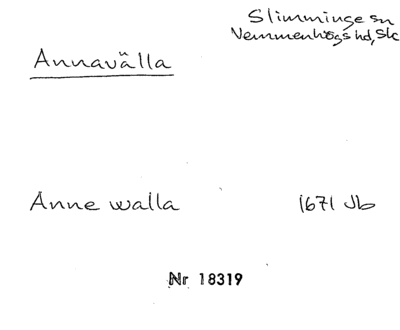 Slimminge sn
Vemmenhögs hd, Sk
Annavälla
Anne walla 1671 Jb
Nr 18319